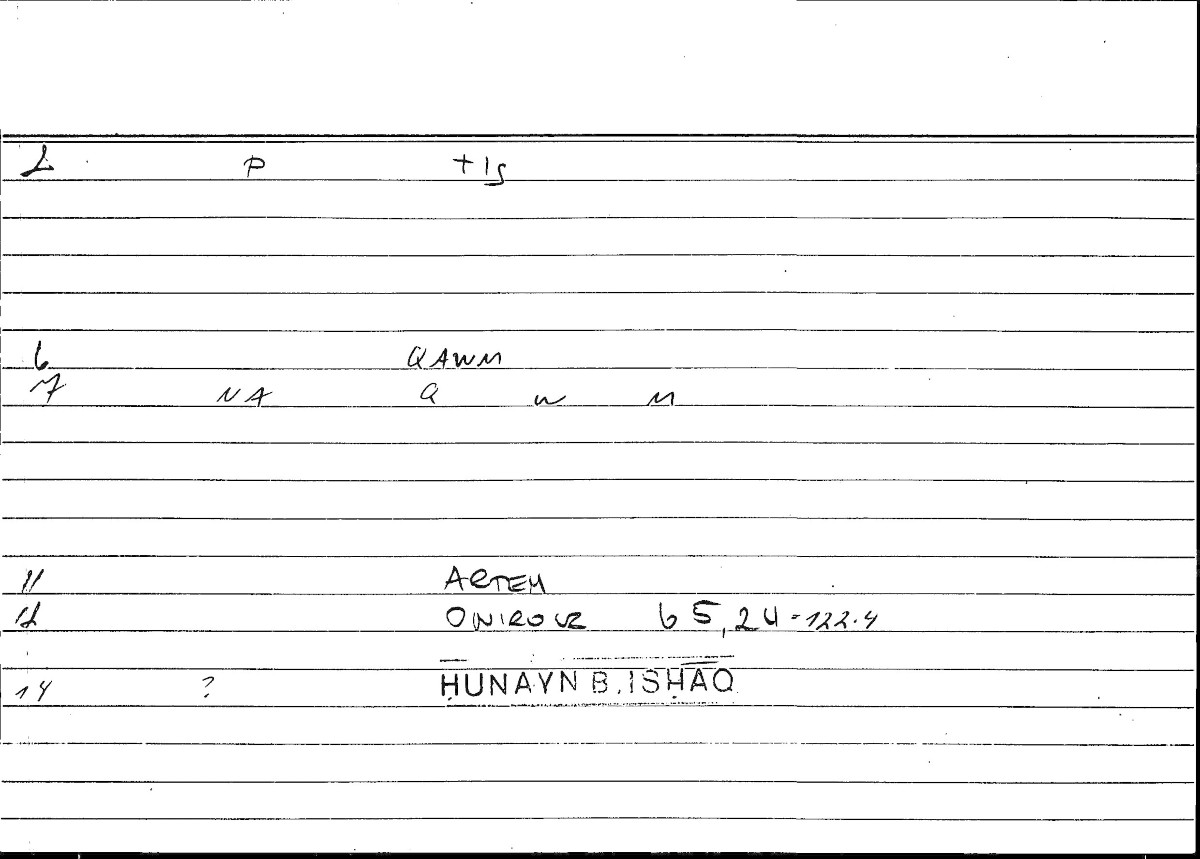 2 P + Is
6 QAWM
7 NA Q W M
11 ARTEM
12 ONIROCR 65,24-122.4
14 ? ḤUNAYN B. ISḤĀQ